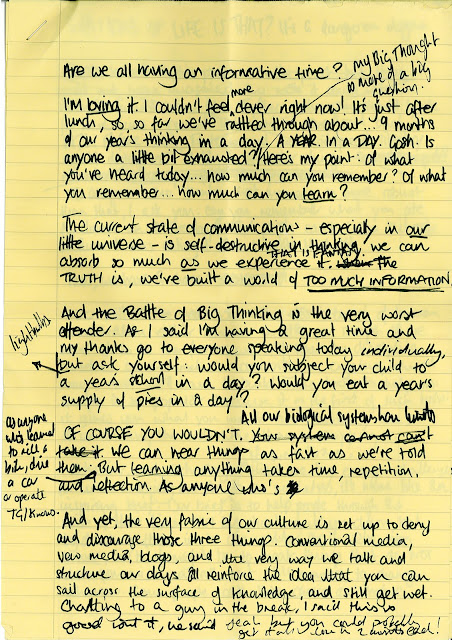 Are we all having an informative time?
my Big Thought
is more of a big
question.
I'm loving it. I couldn't feel more clever right now! It's just after
lunch, so, so far we've rattled through about... 9 months
of our year's thinking in a day. A YEAR. In a DAY. Gosh. Is
anyone a little bit exhausted? Here's my point: of what
you've heard today... how much can you remember? Of what
you remember... how much can you learn?
The current state of communications - especially in our
little universe - is self-destructive in thinking, we can
THAT IS FANTASY.
absorb so much as we experience it. the
TRUTH is, we've built a world of TOO MUCH INFORMATION
And the Battle of Big Thinking is the very worst
offender. As I said I'm having a great time and
lightbulbs
my thanks go to everyone speaking today individually,
but ask yourself: would you subject your child to
a year's school in a day? Would you eat a year's
supply of pies in a day?
All our biological systems have limits
OF COURSE YOU WOULDN'T. Your systems cannot can't
take it. We can hear things as fast as we're told
them. But learning anything takes time, repetition,
and reflection. As anyone who's
as anyone
who's learned
to ride a
bike, drive
a car
or operate
knows.
And yet, the very fabric of our culture is set up to deny
and discourage those three things. Conventional media,
new media, blogs, and the very way we talk and
structure our days all reinforce the idea that you can
sail across the surface of knowledge, and still get wet.
Chatting to a guy in the break, I said this is
good isn't it, he said yeah but you could probably
get it all down in 2 minutes each!